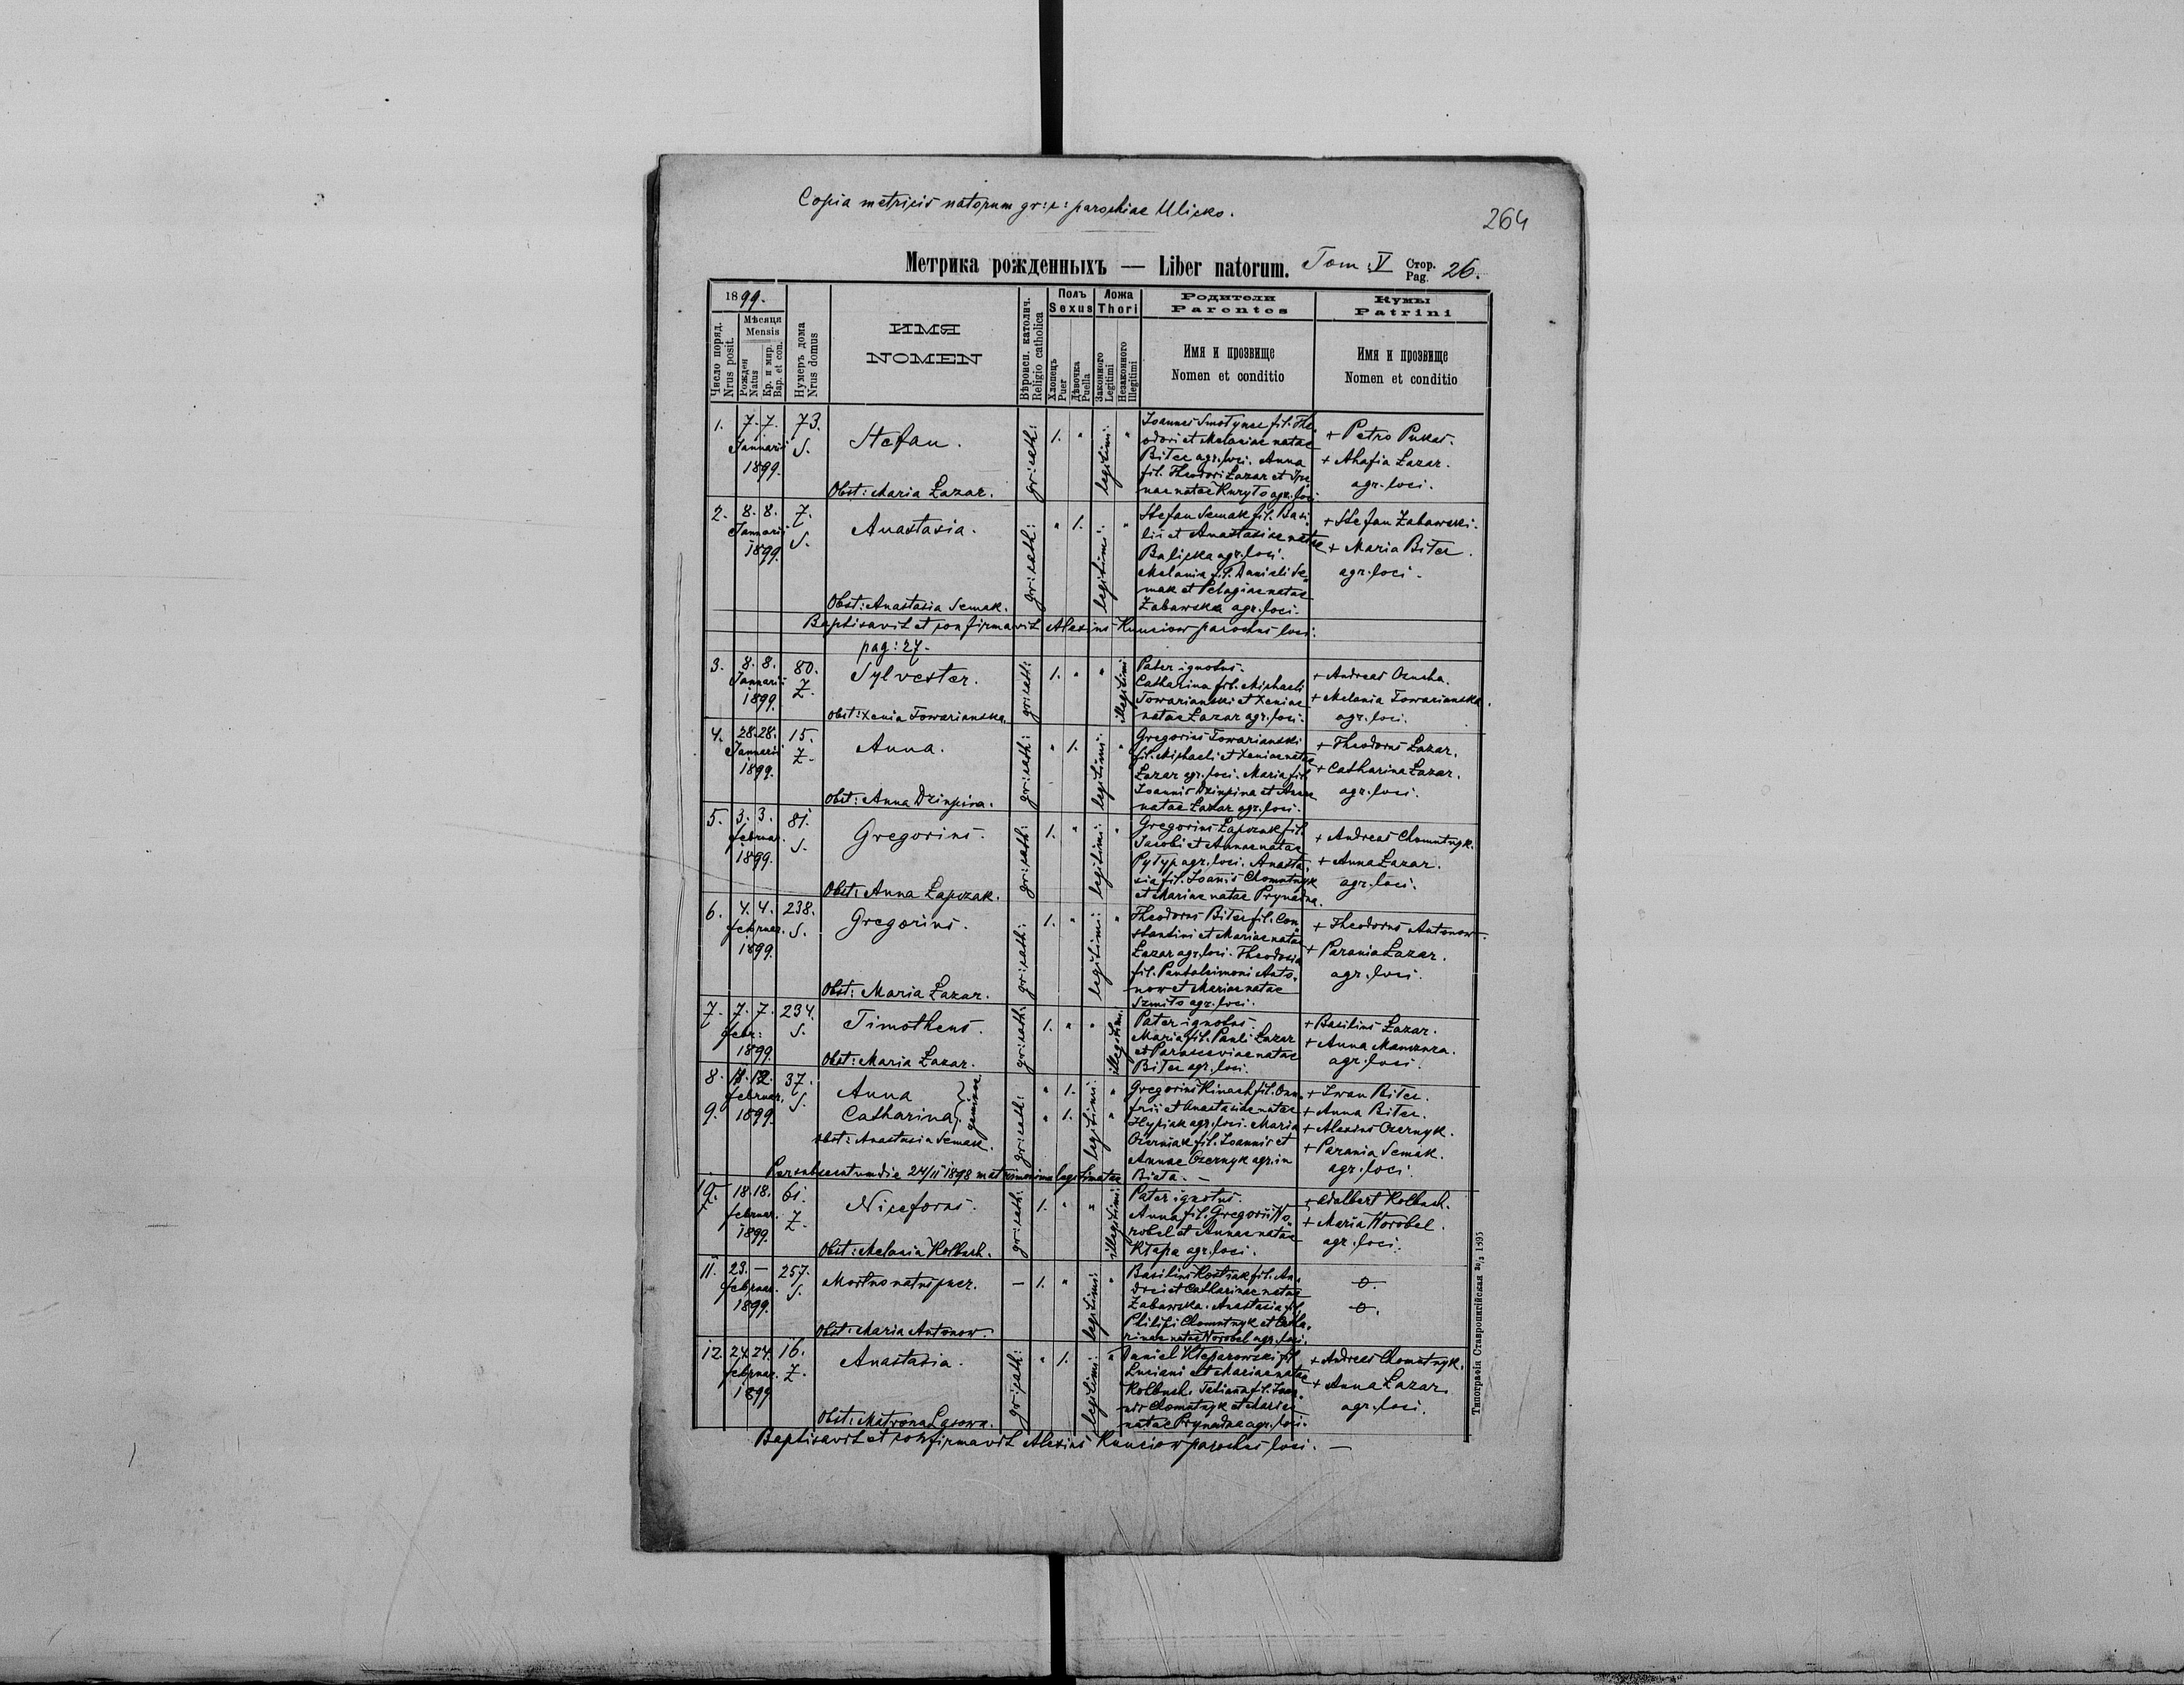 Copia metricis natorum gr: c: parochiae Ulicko.
264
Метрика рожденныхъ — Liber natorum. Tom V Стор. Pag. 26.
1899.
Число поряд. Nrus posit.
Мѣсяця Mensis
Рожден Natus
Кр. и мир. Bap. et con.
Нумеръ дома Nrus domus
ИМЯ
NOMEN
Вѣроисп. католич. Religio catholica
Полъ Sexus
Хлопецъ Puer
Дѣвочка Puella
Ложа Thori
Законного Legitimi
Незаконного Illegitimi
Родители Parentes
Имя и прозвище
Nomen et conditio
Кумы Patrini
Имя и прозвище
Nomen et conditio
1. 7. 7. Januarii 1899. 73. S.
Stefan.
Obst: Maria Łazar.
gr: cath: 1. " legitimi: "
Joannes Smotynec fil. The-
odori et Melaniae natae
Biłec agr. loci. Anna
fil. Theodori Łazar et Ire
nae natae Kuryło agr. loci
+ Petro Pukas.
+ Ahafia Łazar.
agr. loci.
2. 8. 8. Januarii 1899. 7. S.
Anastasia.
Obst: Anastasia Semak.
gr: cath: " 1. legitimi: "
Stefan Semak fil. Basi-
lii et Anastasiae natae
Balicka agr. loci.
Melania fil. Danieli Se-
mak et Pelagiae natae
Żabawska agr. loci.
+ Stefan Żabawski.
+ Maria Biłec.
agr. loci.
Baptisavit et confirmavit Alexius Kunciow parochus loci.
pag: 27.
3. 8. 8. Januarii 1899. 80. Z.
Sylvester.
Obst: Xenia Towarianska.
gr: cath: 1. " " illegitimi
Pater ignotus.
Catharina fil. Michaeli
Towarianski et Xeniae
natae Łazar agr. loci.
+ Andreas
+ Melania Towarianska.
agr. loci.
4. 28. 28. Januarii 1899. 15. Z.
Anna.
Obst: Anna Dzinpina.
gr: cath: " 1. legitimi: "
Gregorius Towarianski
fil. Michaeli et Xeniae natae
Łazar agr. loci. Maria fil
Joannis Dzinpina et Annae
natae Łazar agr. loci.
+ Theodorus Łazar.
+ Catharina Łazar.
agr. loci.
5. 3. 3. februar. 1899. 81. S.
Gregorius.
Obst: Anna Łapczak.
gr: cath: 1. " legitimi: "
Gregorius Łapczak fil.
Jacobi et Annae natae
Pyłyp agr. loci. Anasta-
sia fil. Joannis Chomutnyk
et Mariae natae Prynadna.
+ Andreas Chomutnyk.
+ Anna Łazar.
agr. loci.
6. 4. 4. februar. 1899. 238. S.
Gregorius.
Obst: Maria Łazar.
gr: cath: 1. " legitimi: "
Theodorus Biłec fil. Con
stantini et Mariae natae
Łazar agr. loci. Theodosia
fil. Pantaleimoni Anto-
now et Mariae natae
Szmiło agr. loci.
+ Theodorus Antonow.
+ Parania Łazar.
agr. loci.
7. 7. 7. febr: 1899. 234. S.
Timotheus.
Obst: Maria Łazar.
gr: cath: 1. " " illegitimi.
Pater ignotus.
Maria fil. Pauli Łazar
et Parasceviae natae
Biłec agr. loci.
+ Basilius Łazar.
+ Anna
agr. loci.
8. 9. 12. februar. 1899. 37. S.
Anna
Catharina } geminae
obst: Anastasia Semak.
gr: cath: " 1. " 1. legitimi: " "
Gregorius Kinach fil. Onu-
frii et Anastasiae natae
Hyciak agr. loci. Maria
Ozerniak fil. Joannis et
Annae Ozernyk agr. in
Biała. —
+ Iwan Biłec.
+ Anna Biłec.
+ Alexius Ozernyk.
+ Parania Semak.
agr. loci.
Per subsecutum die 24/II 1898 matrimonium legitimatae
10. 18. 18. februar. 1899. 61. Z.
Niceforus.
Obst: Melania Kolbuch.
gr: cath: 1. " " illegitimi:
Pater ignotus.
Anna fil. Gregorii Wo-
robel et Annae natae
Kłapa agr. loci.
+ Adalbert Kolbuch.
+ Maria Worobel.
agr. loci.
11. 23. — februar. 1899. 257. S.
Mortuo natus puer.
Obst: Maria Antonow.
— 1. " legitimi: "
Basilius Kostiak fil. An-
drei et Catharinae natae
Żabawska. Anastasia fil
Philipi Chomutnyk et Catha-
rinae natae Worobel agr. loci.
12. 24. 24. februar. 1899 16. Z.
Anastasia.
Obst: Matrona Lasowa.
gr: cath: " 1. legitimi: "
Daniel Kłeparowski fil
Luciani et Mariae natae
Kolbuch. Tatiana fil. Joan-
nis Chomutnyk et Mariae
natae Prynadna agr. loci.
+ Andreas Chomutnyk.
+ Anna Łazar.
agr. loci.
Baptisavit et confirmavit Alexius Kunciow parochus loci. —
Типографія Ставропигійская 20/3 1895